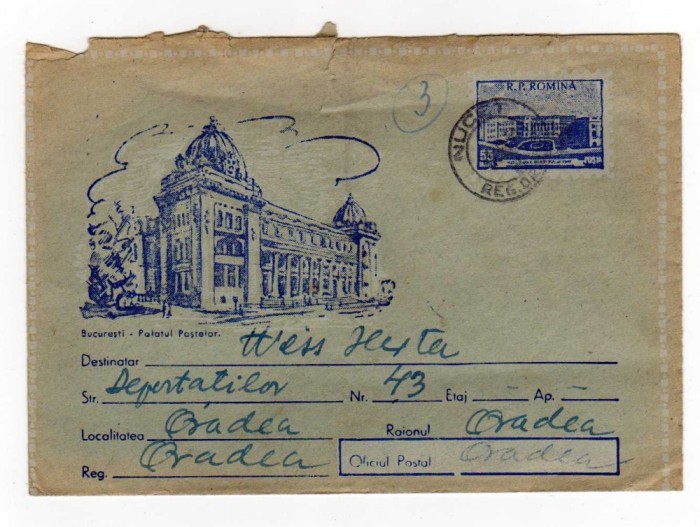 3
R.P. ROMINA
55
POSTA
NUCET
REG. O
Bucuresti - Palatul Postelor.
Destinatar Weiss Herta
Str. Deportatilor Nr. 43 Etaj — Ap. —
Localitatea Oradea Raionul Oradea
Reg. Oradea Oficiul Postal Oradea